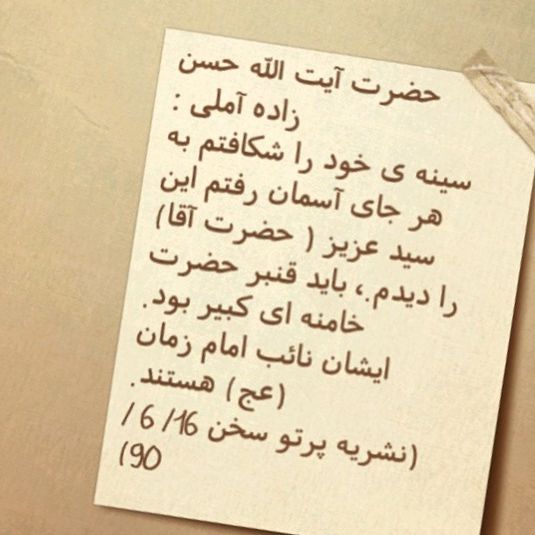 حضرت آیت الله حسن
زاده آملی :
سینه ی خود را شکافتم به
هر جای آسمان رفتم این
سید عزیز ( حضرت آقا)
را دیدم.، باید قنبر حضرت
خامنه ای کبیر بود.
ایشان نائب امام زمان
(عج) هستند.
(نشریه پرتو سخن 16/ 6 /
90)